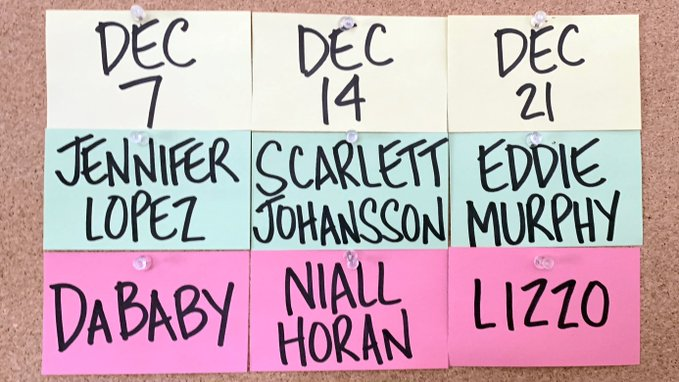 DEC
7
DEC
14
DEC
21
JENNIFER
LOPEZ
SCARLETT
JOHANSSON
EDDIE
MURPHY
DABABY
NIALL
HORAN
LIZZO